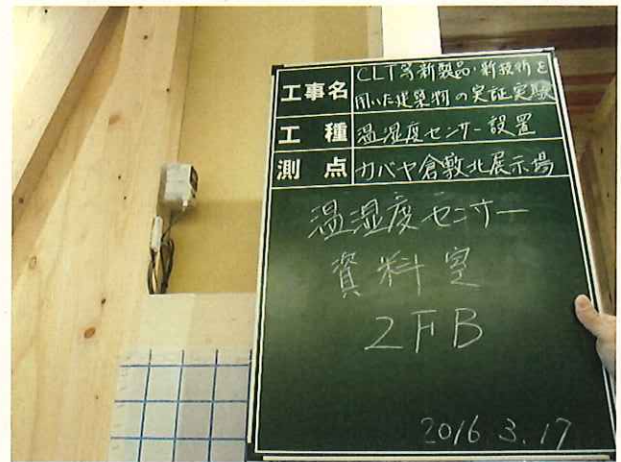 工事名 CLT等新製品・新技術を
用いた建築物の実証実験
工種 温湿度センサー設置
測点 カバヤ倉敷北展示場
温湿度センサー
資料室
2FB
2016.3.17